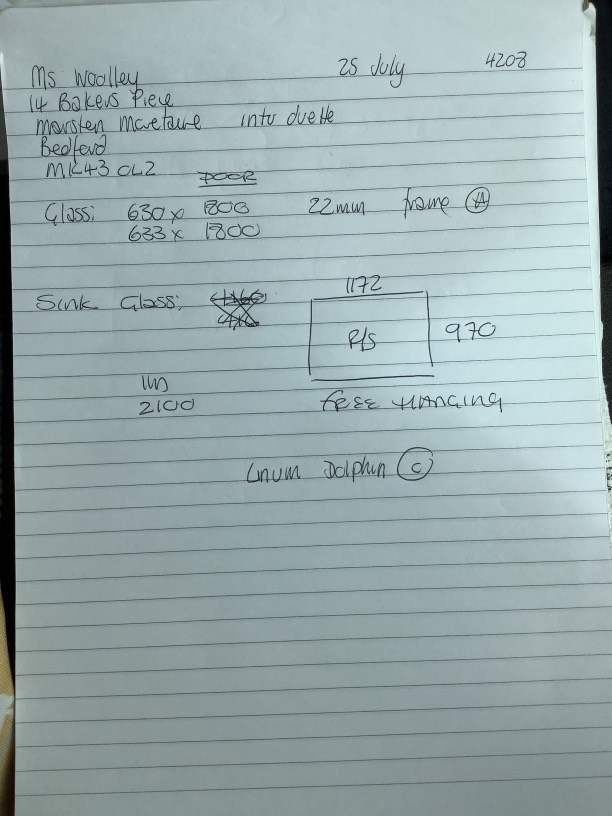 Ms Woolley 25 July 4208
14 Bakers Piece
Marsten Moretaine intu duette
Bedford
MK43 0LZ
DOOR
Glass: 630 x 1800 22mm frame A
633 x 1800
Sink Glass:
1172
R/S 970
Un
2100 free HANGING
Linum Dolphin C